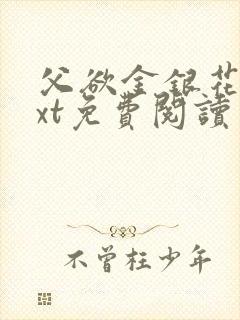 父欲金银花
xt免費閱讀
不曾枉少年